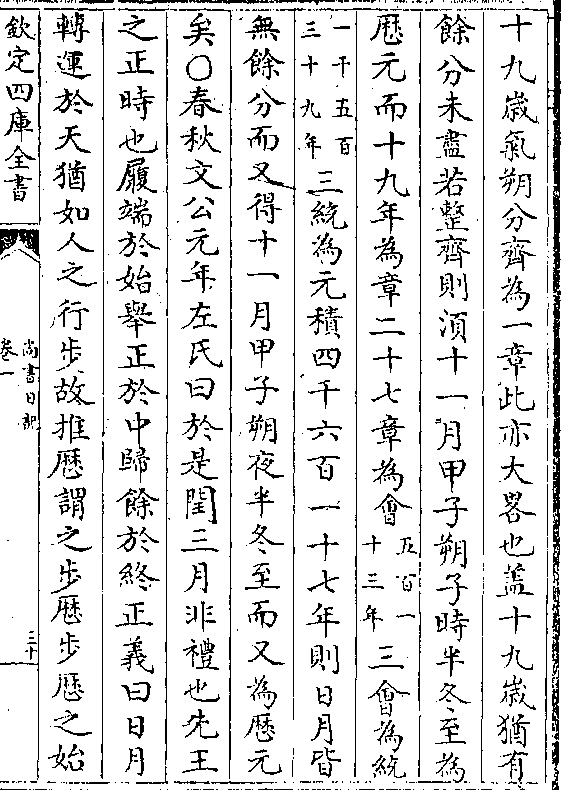 十九歳氣朔分齊為一章此亦大畧也葢十九歳猶有
餘分未盡若整齊則湏十一月甲子朔子時半冬至為
厯元而十九年為章二十七章為會五百一十三年三會為統
一千五百三十九年三統為元積四千六百一十七年則日月皆
無餘分而又得十一月甲子朔夜半冬至而又為厯元
矣○春秋文公元年左氏曰於是閏三月非禮也先王
之正時也履端於始舉正於中歸餘於終正義曰日月
轉運於天猶如人之行步故推厯謂之步厯步厯之始
欽定四庫全書
尚書日記
卷一
三十